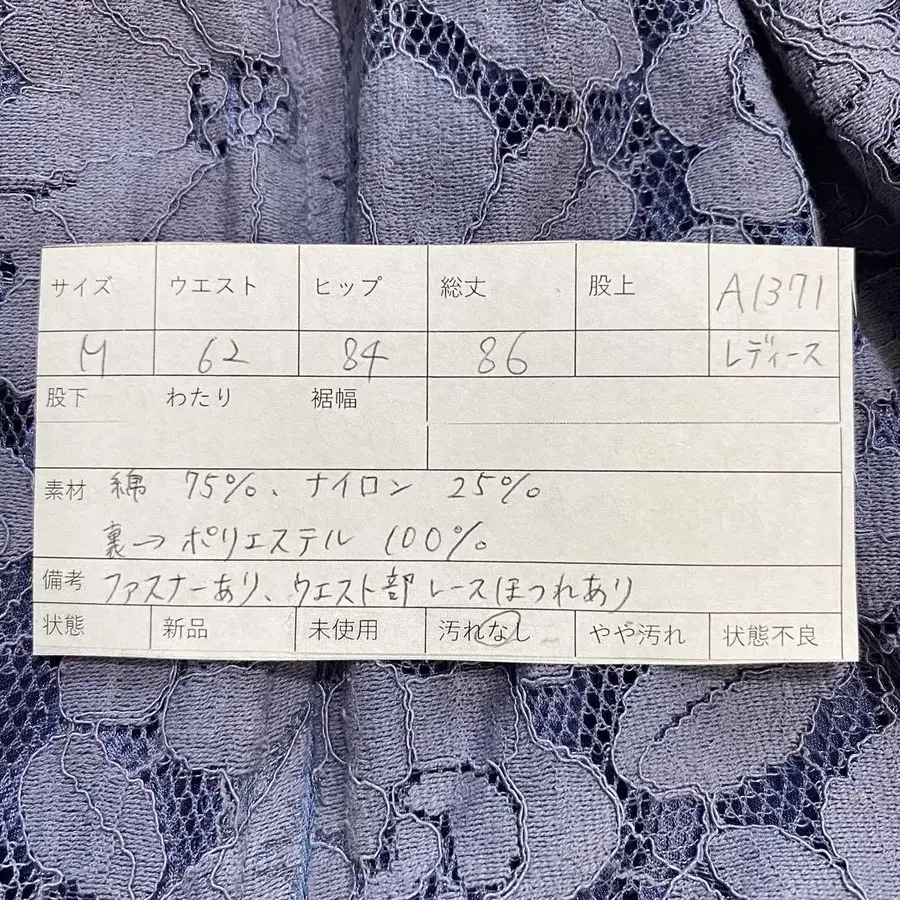 サイズ ウエスト ヒップ 総丈 股上 A1371
M 62 84 86 レディース
股下 わたり 裾幅
素材 綿 75%、ナイロン 25%
裏→ポリエステル 100%
備考 ファスナーあり、ウエスト部レースほつれあり
状態 新品 未使用 汚れなし やや汚れ 状態不良